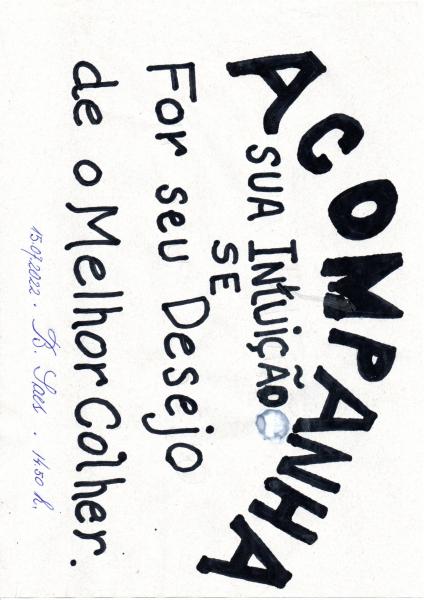 ACOMPANHA
SUA INTUIÇÃO
SE
For seu Desejo
de o Melhor Colher.
15.07.2022. B. Saes. 14:50 h.